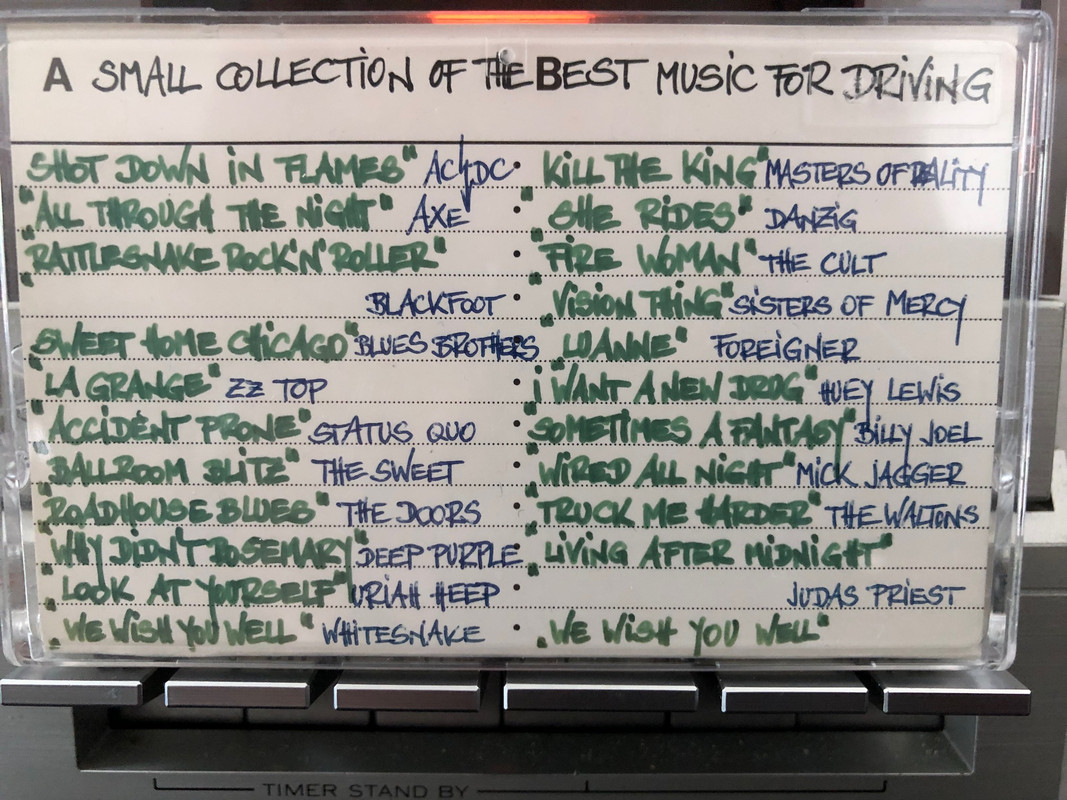 A SMALL COLLECTION OF THE BEST MUSIC FOR DRIVING
SHOT DOWN IN FLAMES" AC/DC
"ALL THROUGH THE NIGHT" AXE
"RATTLESNAKE ROCK'N'ROLLER"
BLACKFOOT
"SWEET HOME CHICAGO" BLUES BROTHERS
"LA GRANGE" ZZ TOP
"ACCIDENT PRONE" STATUS QUO
"BALLROOM BLITZ" THE SWEET
"ROADHOUSE BLUES" THE DOORS
"WHY DIDN'T ROSEMARY" DEEP PURPLE
"LOOK AT YOURSELF" URIAH HEEP
"WE WISH YOU WELL" WHITESNAKE
"KILL THE KING" MASTERS OF REALITY
"SHE RIDES" DANZIG
"FIRE WOMAN" THE CULT
"VISION THING" SISTERS OF MERCY
"LUANNE" FOREIGNER
"I WANT A NEW DRUG" HUEY LEWIS
"SOMETIMES A FANTASY" BILLY JOEL
"WIRED ALL NIGHT" MICK JAGGER
"TRUCK ME HARDER" THE WALTONS
"LIVING AFTER MIDNIGHT"
JUDAS PRIEST
"WE WISH YOU WELL"
TIMER STAND BY